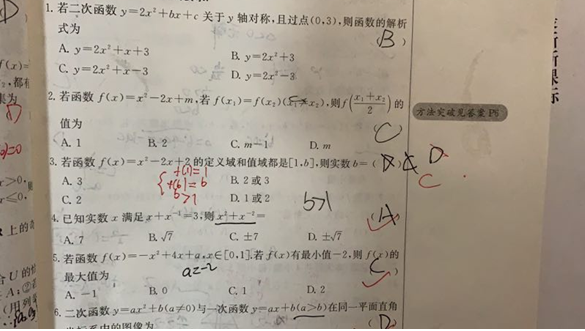 1. 若二次函数 y=2x²+bx+c 关于 y 轴对称,且过点(0,3),则函数的解析
式为 (B)
A. y=2x²+x+3 B. y=2x²+3
C. y=2x²+x-3 D. y=2x²-3
2. 若函数 f(x)=x²-2x+m,若 f(x₁)=f(x₂)(x₁≠x₂),则f((x₁+x₂)/2)的
值为 C
A. 1 B. 2 C. m-1 D. m
方法突破见答案P6
3. 若函数 f(x)=x²-2x+2的定义域和值域都是[1,b],则实数 b=( D
C
A. 3 B. 2或3
f(1)=1
f(b)=b
b>1
C. 2 D. 1或2
b>1
4. 已知实数 x 满足 x+x⁻¹=3,则 x²+x⁻²= (A)
A. 7 B. √7 C. ±7 D. ±√7
5. 若函数 f(x)=-x²+4x+a,x∈[0,1].若 f(x)有最小值-2,则 f(x)的
最大值为 a=-2 C
A. -1 B. 0 C. 1 D. 2
6. 二次函数 y=ax²+b(a≠0)与一次函数 y=ax+b(a>b)在同一平面直角
坐标系中的图像为 (D